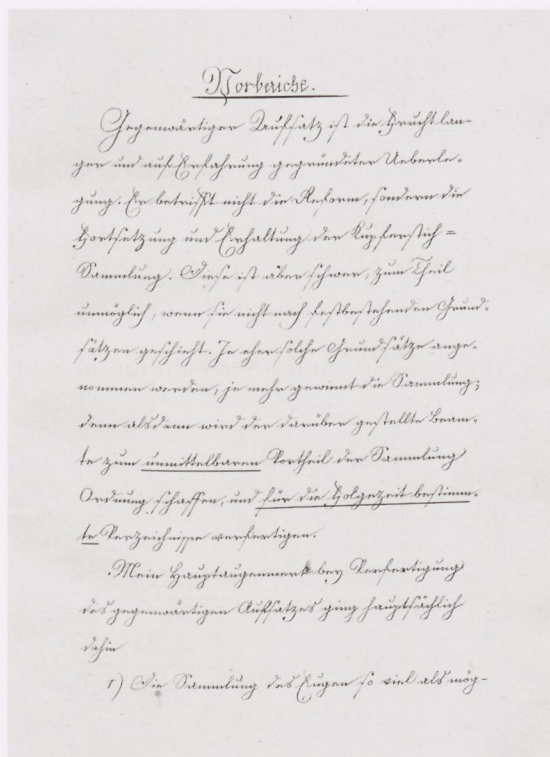 Vorbericht.
Gegenwärtiger Aufsatz ist die Frucht lan-
ger und auf Erfahrung gegründeter Ueberle-
gung. Er betrifft nicht die Reform, sondern die
Fortsetzung und Erhaltung der Kupferstich =
Sammlung. Diese ist aber schwer, zum Theil
unmöglich, wenn sie nicht nach festbestehenden Grund-
sätzen geschieht. Je eher solche Grundsätze ange-
nommen werden, je mehr gewinnt die Sammlung;
denn alsdann wird der darüber gestellte Beam-
te zum unmittelbaren Vortheil der Sammlung
Ordnung schaffen, und für die Folgezeit bestimm-
te Verzeichnisse verfertigen.
Mein Hauptaugenmerk bey Verfertigung
des gegenwärtigen Aufsatzes ging hauptsächlich
dahin
1) Die Sammlung des Eugen so viel als mög-